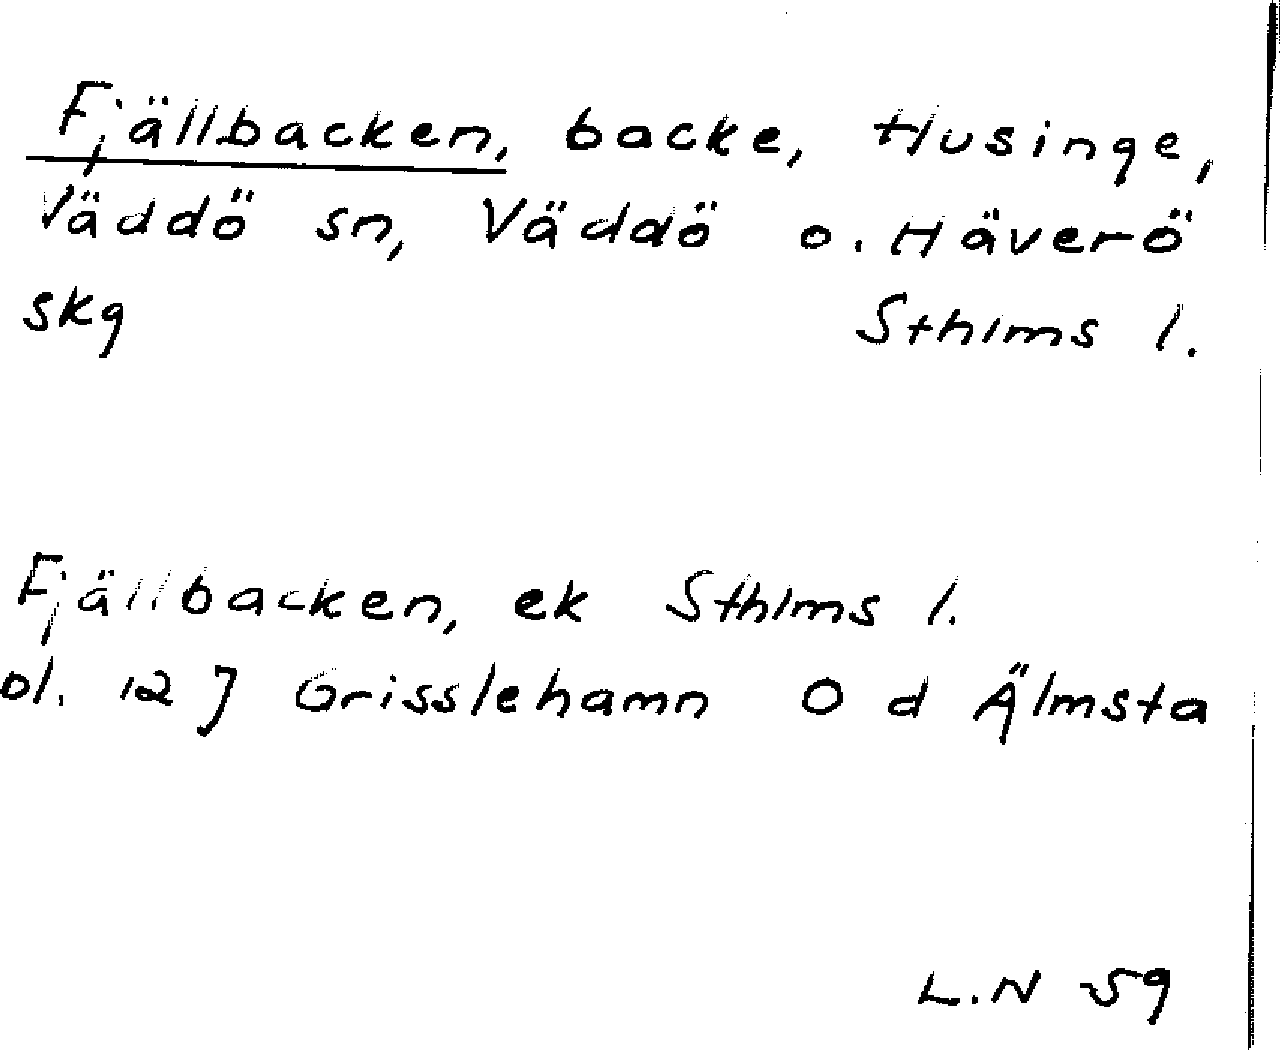 Fjällbacken, backe, Husinge,
Väddö sn, Väddö o. Häverö
skg Sthlms l.
Fjällbacken, ek Sthlms l.
bl. 12 J Grisslehamn O d Älmsta
L.N 59